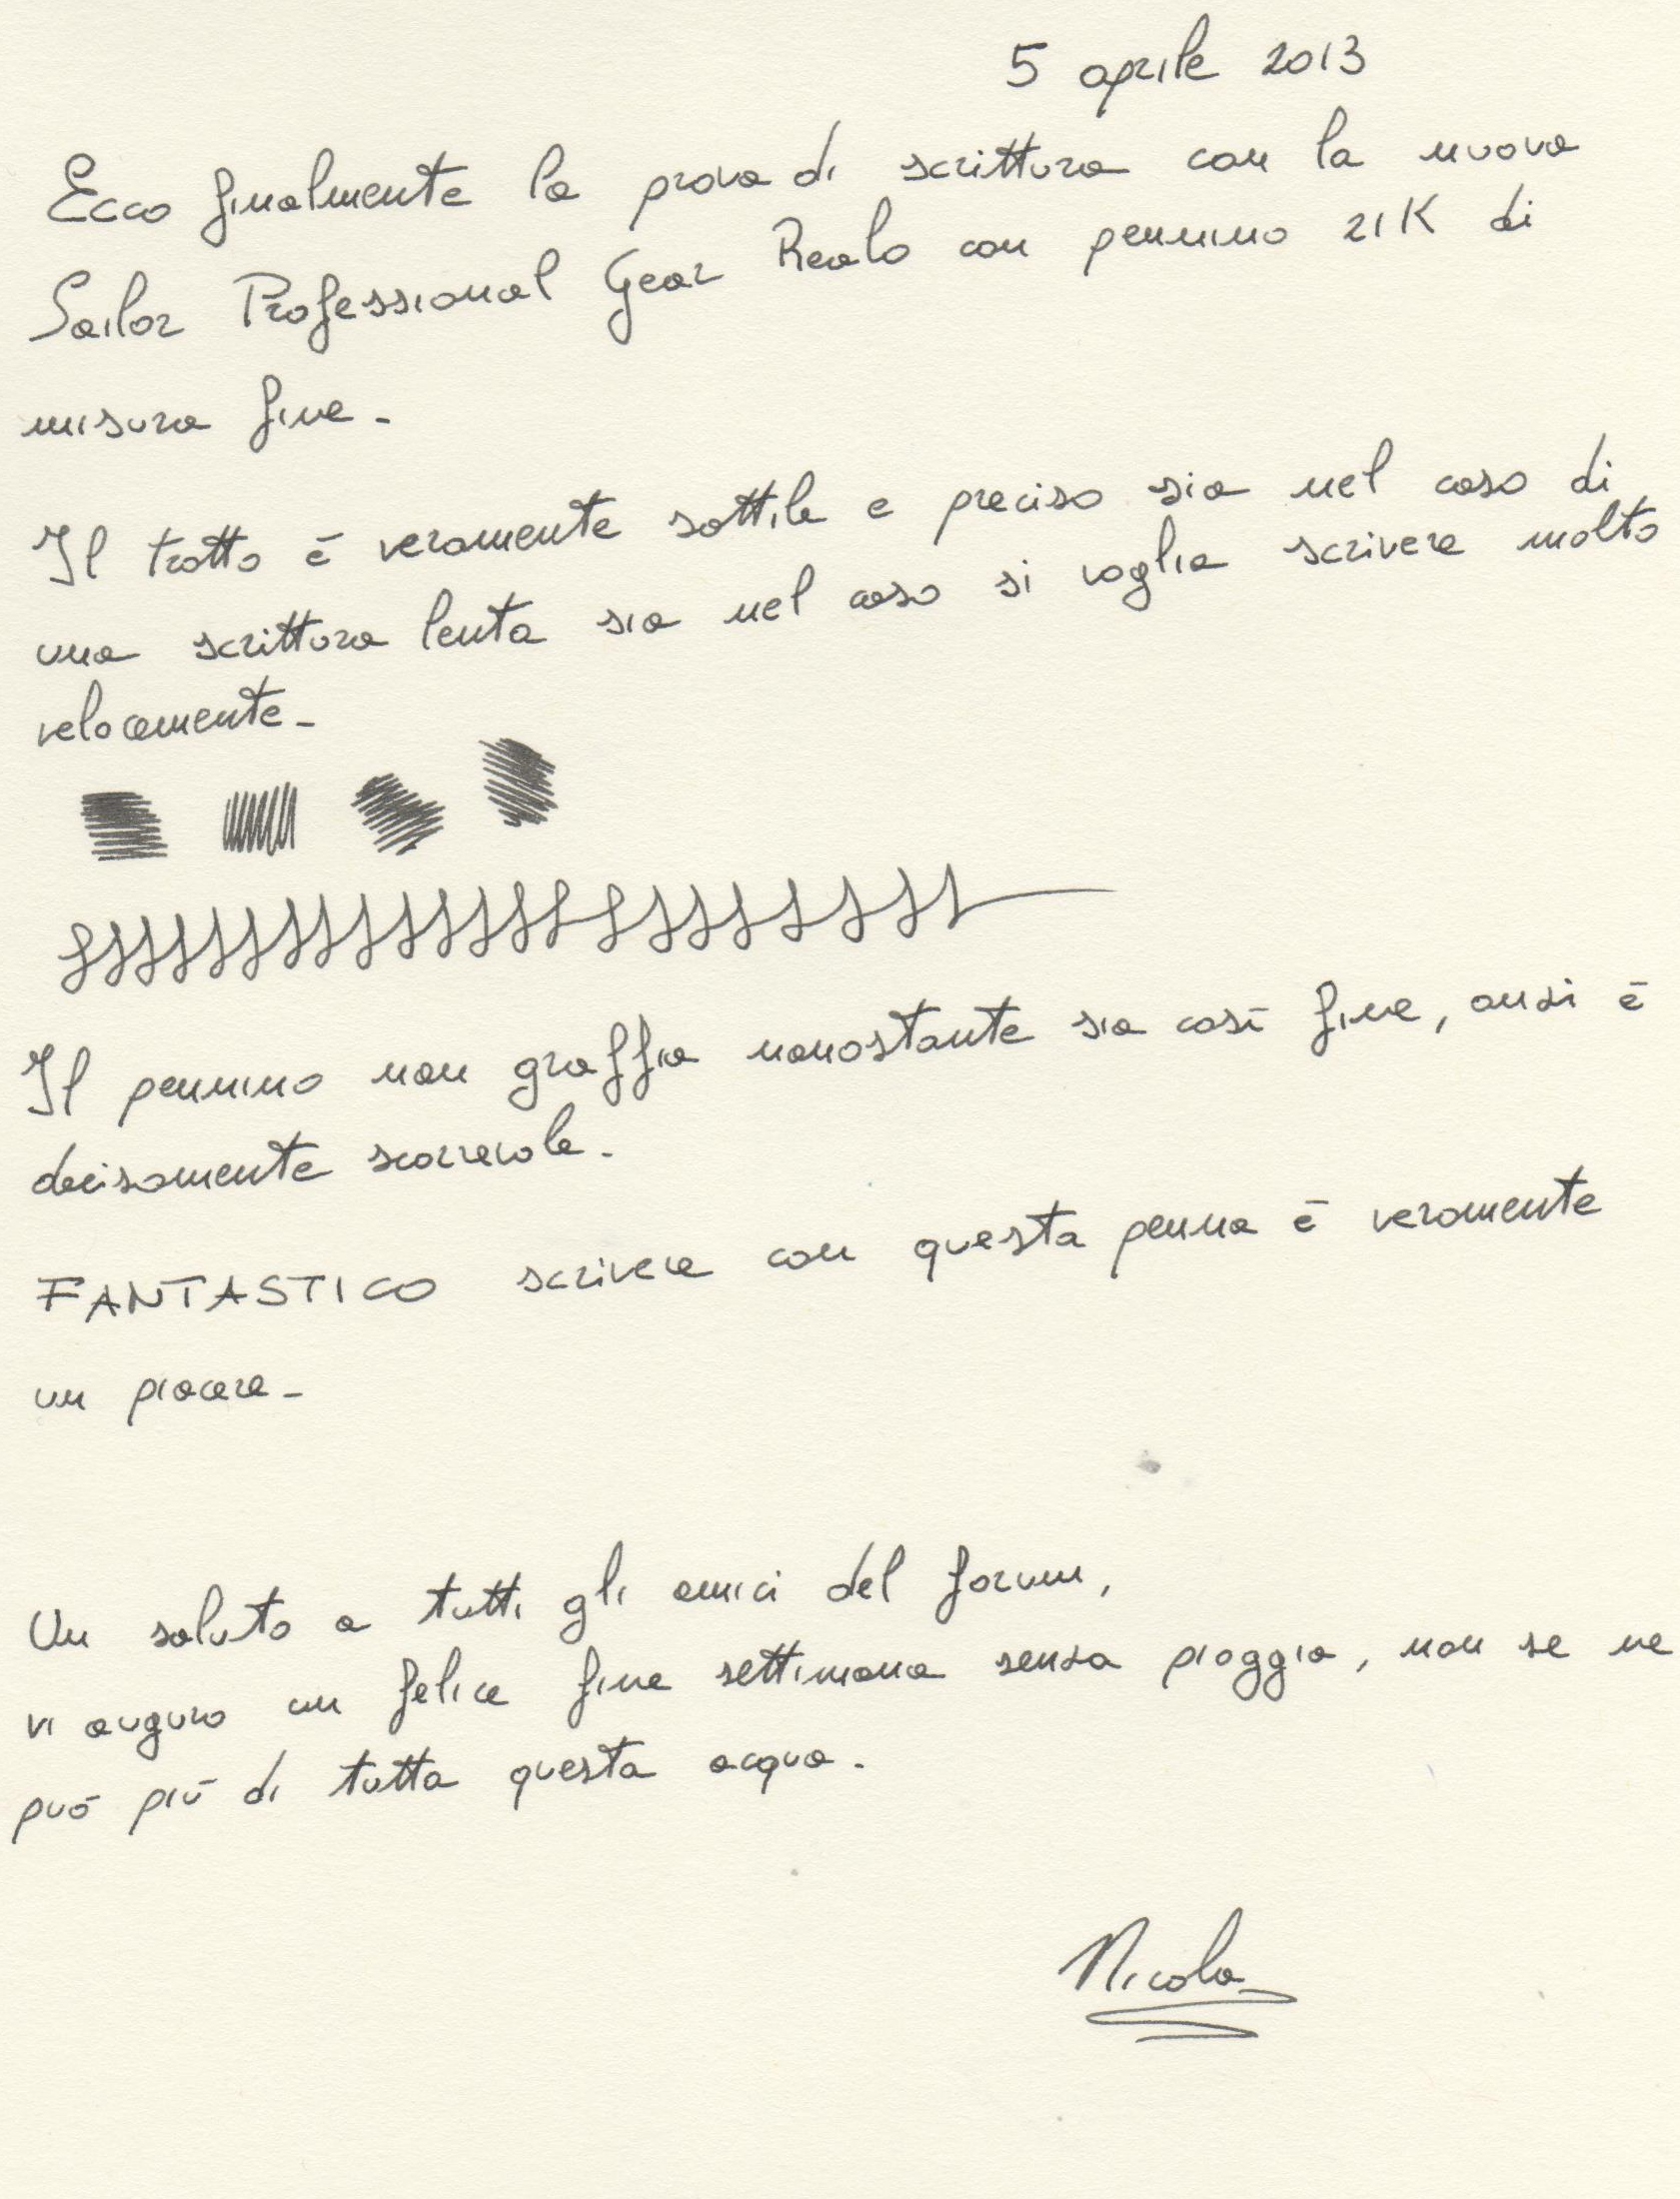 5 aprile 2013
Ecco finalmente la prova di scrittura con la nuova
Sailor Professional Gear Realo con pennino 21K di
misura fine.
Il tratto è veramente sottile e preciso sia nel caso di
una scrittura lenta sia nel caso si voglia scrivere molto
velocemente.
Il pennino non graffia nonostante sia così fine, anzi è
decisamente scorrevole.
FANTASTICO scrivere con questa penna è veramente
un piacere.
Un saluto a tutti gli amici del forum,
vi auguro un felice fine settimana senza pioggia, non se ne
può più di tutta questa acqua.
Nicola